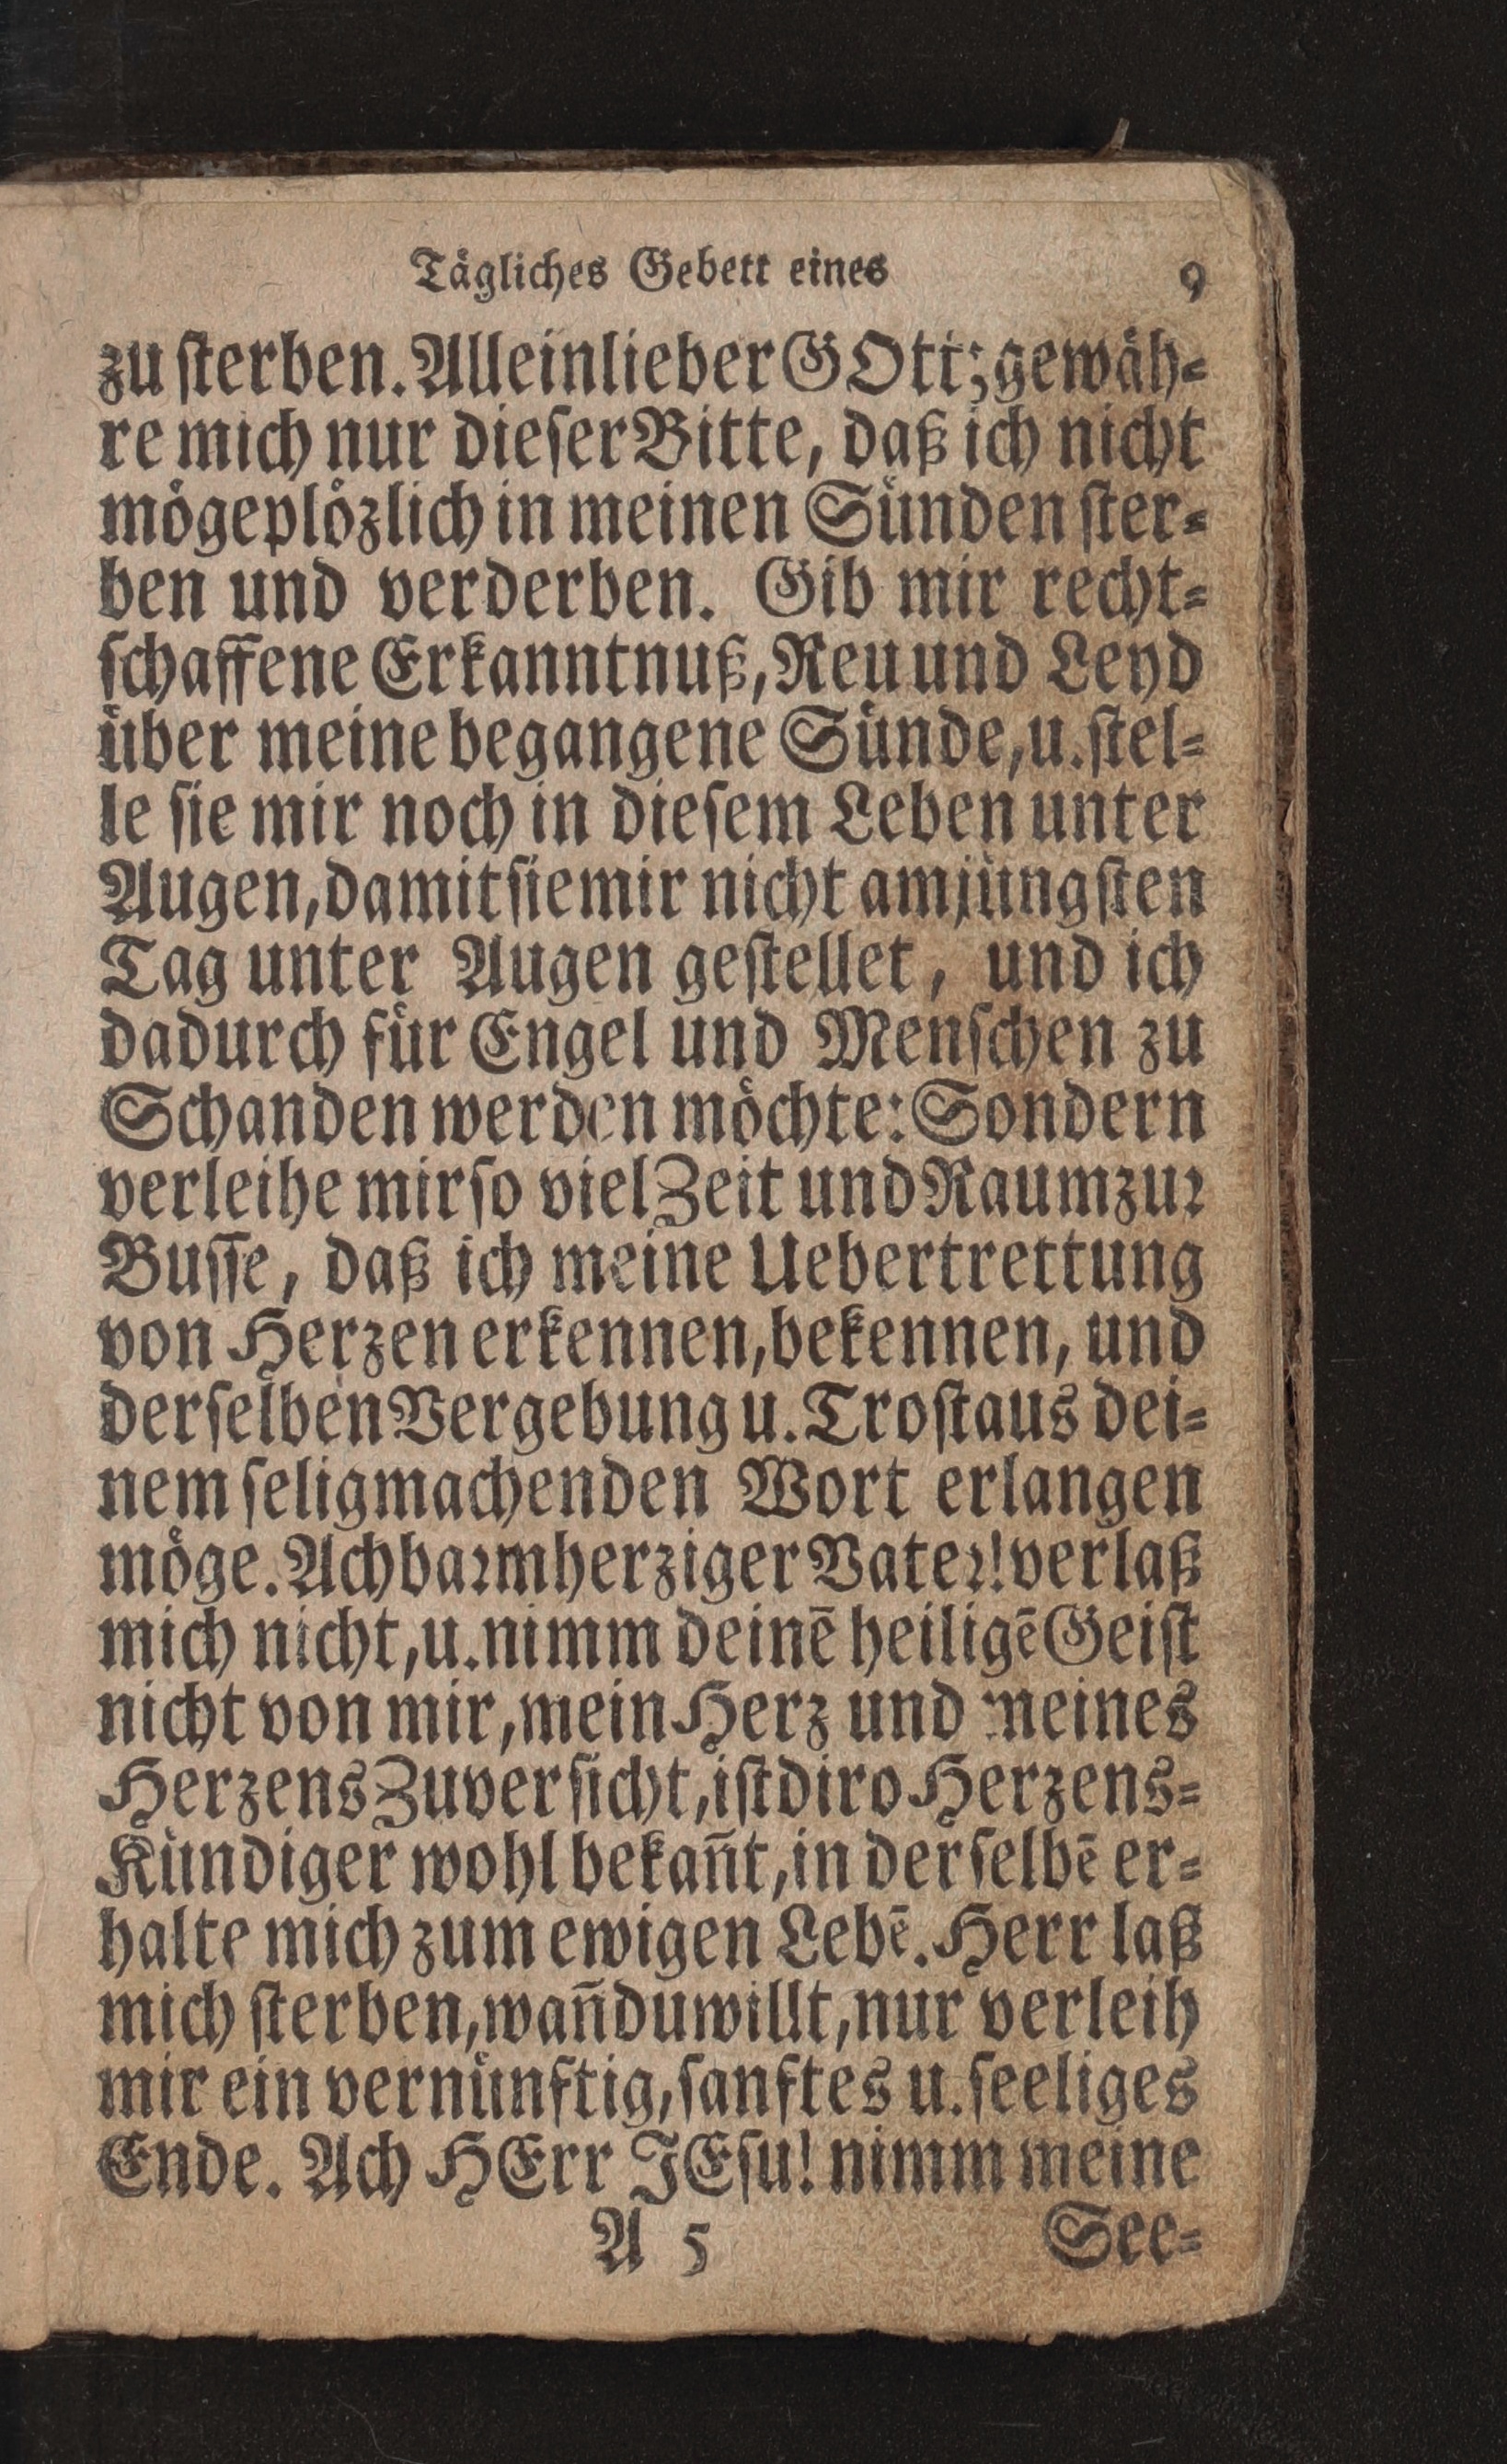 Tägliches Gebett eines 9
zu sterben. Allein lieber GOtt; gewäh-
re mich nur dieser Bitte, daß ich nicht
möge plözlich in meinen Sünden ster-
ben und verderben. Gib mir recht-
schaffene Erkanntnuß, Reu und Leyd
über meine begangene Sünde, u. stel-
le sie mir noch in diesem Leben unter
Augen, damit sie mir nicht am jüngsten
Tag unter Augen gestellet, und ich
dadurch für Engel und Menschen zu
Schanden werden möchte: Sondern
verleihe mir so viel Zeit und Raum zur
Busse, daß ich meine Uebertrettung
von Herzen erkennen, bekennen, und
derselben Vergebung u. Trost aus dei-
nem seligmachenden Wort erlangen
möge. Ach barmherziger Vater! verlaß
mich nicht, u. nimm deinē heiligē Geist
nicht von mir, mein Herz und meines
Herzens Zuversicht, ist dir o Herzens-
Kündiger wohl bekan̄t, in derselbē er-
halte mich zum ewigen Lebē. Herr laß
mich sterben, wan̄ du willt, nur verleih
mir ein vernünftig, sanftes u. seeliges
Ende. Ach HErr JEsu! nimm meine
A 5 See-